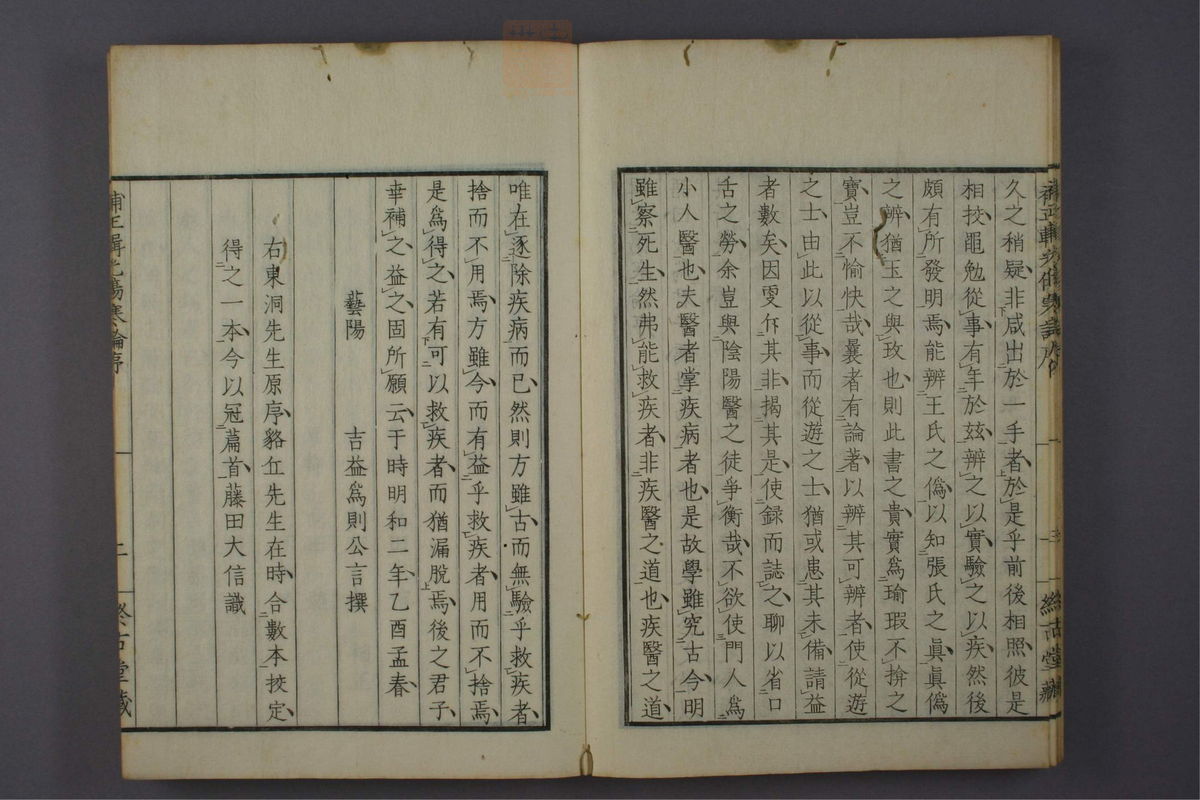 久之稍疑非咸出於一手者於是乎前後相照彼是
相挍黽勉從事有年於玆辨之以實驗之以疾然後
頗有所發明焉能辨王氏之僞以知張氏之眞眞僞
之辨猶玉之與玫也則此書之貴實爲瑜瑕不揜之
寶豈不愉快哉曩者有論著以辨其可辨者使從遊
之士由此以從事而從遊之士猶或患其未備請益
者數矣因雯斥其非揭其是使録而誌之聊以省口
舌之勞余豈與陰陽醫之徒爭衡哉不欲使門人爲
小人醫也夫醫者掌疾病者也是故學雖究古今明
雖察死生然弗能救疾者非疾醫之道也疾醫之道
唯在逐除疾病而已然則方雖古而無驗乎救疾者
捨而不用焉方雖今而有益乎救疾者用而不捨焉
是爲得之若有可以救疾者而猶漏脫焉後之君子
幸補之益之固所願云于時明和二年乙酉孟春
藝陽 吉益爲則公言撰
右東洞先生原序貉丘先生在時合數本挍定
得之一本今以冠篇首藤田大信識
補正輯光傷寒論序 二